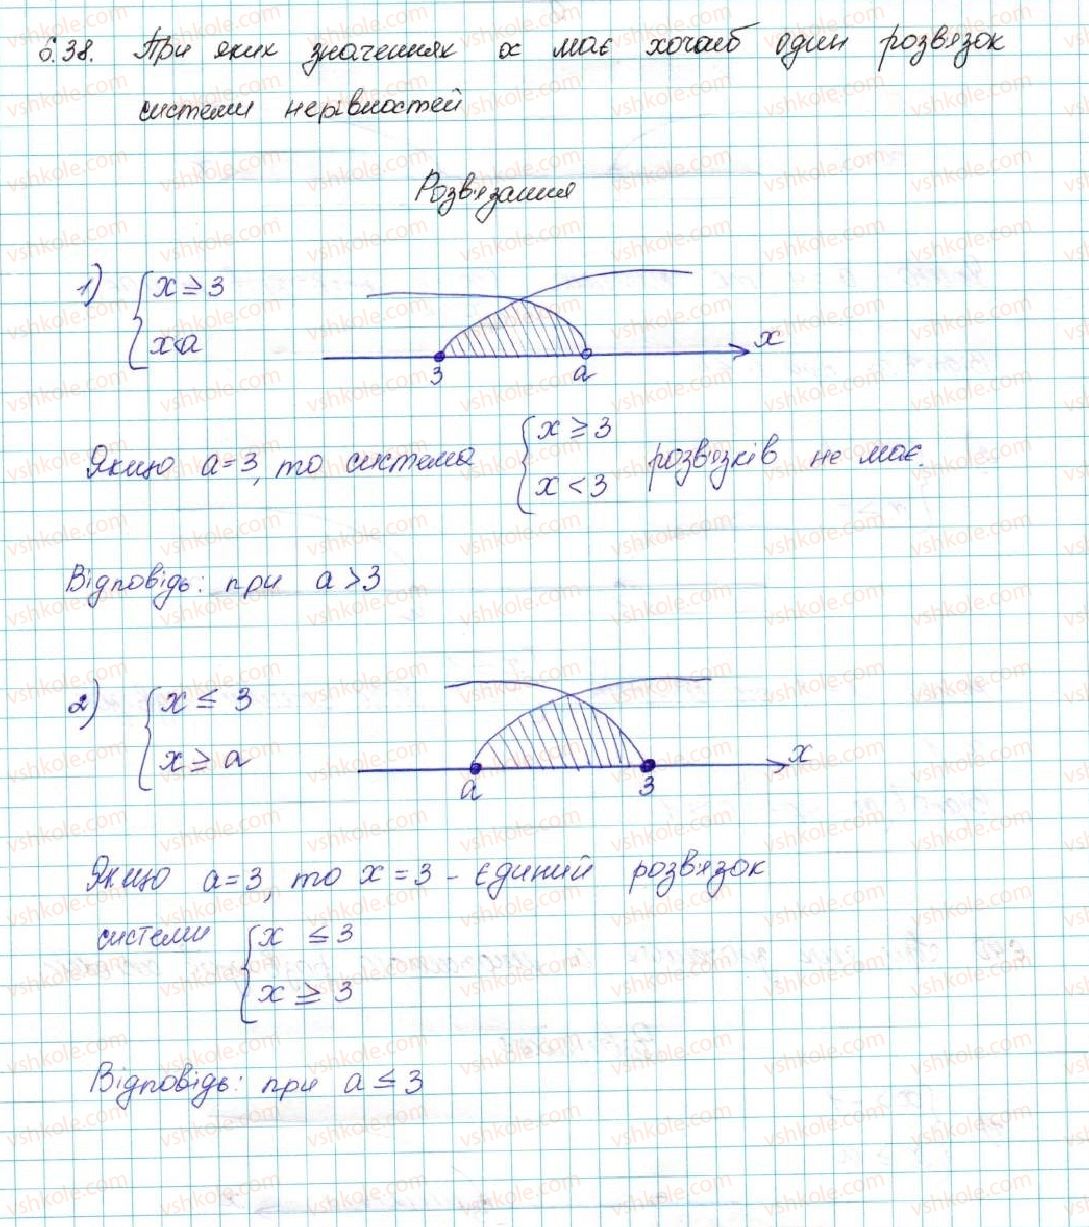 6.38. При яких значеннях a має хочаб один розв'язок
системи нерівностей
Розв'язання
1) { x ≥ 3
x < a
3 a x
Якщо a = 3, то система { x ≥ 3 розв'язків не має.
x < 3
Відповідь: при a > 3
2) { x ≤ 3
x ≥ a
a 3 x
Якщо a = 3, то x = 3 - єдиний розв'язок
системи { x ≤ 3
x ≥ 3
Відповідь: при a ≤ 3
vshkole.com